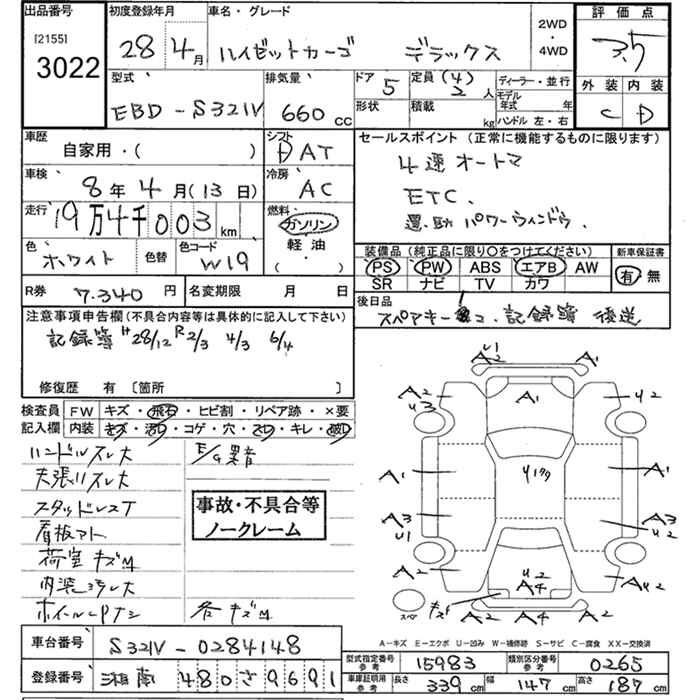 出品番号
[2155]
3022
初度登録年月
28年4月
車名・グレード
ハイゼットカーゴ デラックス
2WD
・
4WD
評価点
3.5
外装 内装
C D
型式
EBD-S321V
排気量
660 CC
ドア 5
形状
定員 (4)
2人
積載 kg
ディーラー・並行
モデル年式 年
ハンドル 左・右
車歴
自家用・( )
シフト
DAT
車検
8年4月(13日)
冷房
AC
走行
19万4千003km
燃料
ガソリン
軽油・
( )
色
ホワイト
色替
色コード
W19
R券 7.340円
名変期限 月 日
セールスポイント(正常に機能するものに限ります)
4速オートマ
ETC.
運.助パワーウィンドウ.
装備品(純正品に限り○をつけてください)
PS PW ABS エアB AW
SR ナビ TV カワ
新車保証書
有 無
後日品
スペアキー1コ.記録簿 後送
注意事項申告欄(不具合内容等は具体的に記入して下さい)
記録簿 H28/12 R2/3 4/3 6/4
修復歴 有〔箇所 〕
検査員 FW キズ・飛石・ヒビ割・リペア跡・×要
記入欄 内装 キズ・汚レ・コゲ・穴・スレ・キレ・破レ
ハンドルスレ大 E/G異音
天張リスレ大
スタッドレスT
看板アト
荷室キズM
内装ヨゴレ大
ホイールPナシ 各キズM
事故・不具合等
ノークレーム
U1
A2 A1
A2 U3 U2
A1 U177 A1
A3 U1 A3 U2
A2 U2 A4 AU2
スペア キズ A2 A4 A2
A-キズ E-エクボ U-凹み W-補修跡 S-サビ C-腐食 XX-交換済
車台番号 S321V-0284148
登録番号 湘南 480 さ 9691
型式指定番号 参考 15983 類別区分番号 参考 0265
車庫証明用 参考 長さ 339cm 幅 147cm 高さ 187cm